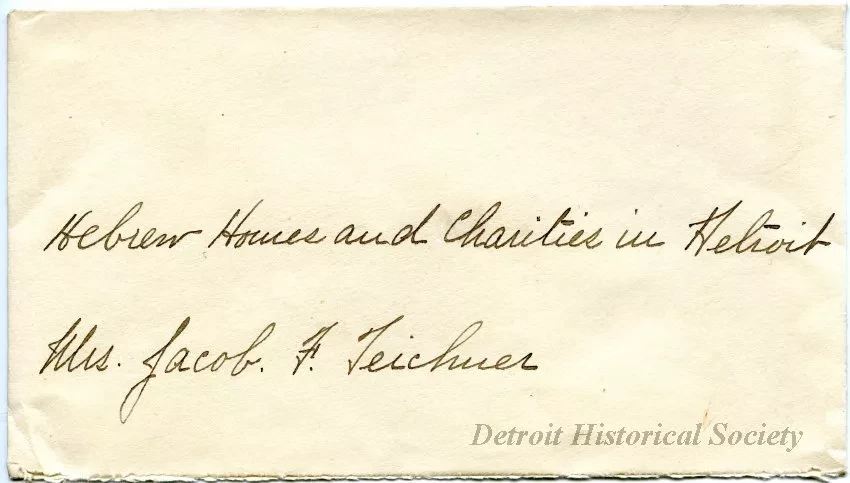 Hebrew Homes and Charities in Detroit
Mrs. Jacob. F. Teichner
Detroit Historical Society